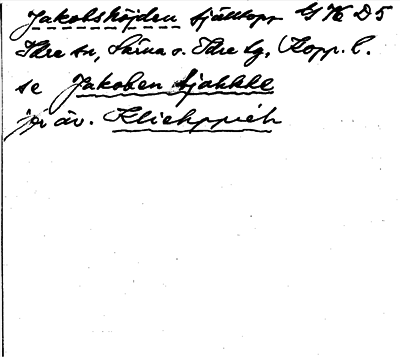 Jakobshöjden fjälltopp GK D5
Idre sn, Särna o. Idre tg, Kopp. l.
se Jakoben tjahkke
jfr äv. Kliehppieh